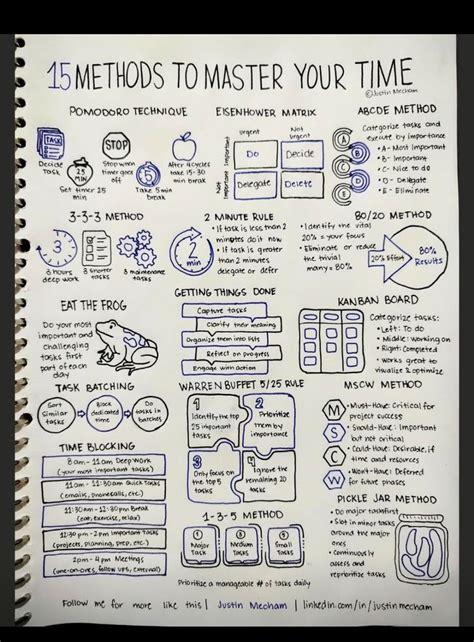 15 METHODS TO MASTER YOUR TIME
©Justin Mecham
POMODORO TECHNIQUE
TASK
Decide
task
25
MIN
Set timer 25
min
STOP
Stop when
timer goes
off
5
Take 5 min
break
After 4 cycles
take 15-30
min break
EISENHOWER MATRIX
Urgent
Not
Urgent
Important
Not Important
Do
Decide
Delegate
Delete
ABCDE METHOD
Categorize tasks and
execute by importance
A
B
C
D
E
• A- Most Important
• B- Important
• C- Nice to do
• D- Delegate
• E- Eliminate
3-3-3 METHOD
3
3 hours
deep work
3 shorter
tasks
3 maintenance
tasks
2 MINUTE RULE
2
min
• If task is less than 2
minutes do it now
• If task is greater
than 2 minutes
delegate or defer
80/20 METHOD
• Identify the vital
20% = your focus
• Eliminate or reduce
the trivial
many = 80%
20% Effort
80%
Results
EAT THE FROG
Do your most
important and
challenging
tasks first
part of each
day
GETTING THINGS DONE
Capture tasks
Clarify their meaning
Organize them into lists
Reflect on progress
Engage with action
KANBAN BOARD
Categorize tasks:
• Left: To do
• Middle: Working on
• Right: Completed
• Works great to
visualize & optimize
TASK BATCHING
Sort
Similar
tasks
Block
dedicated
time
Do
tasks in
batches
WARREN BUFFET 5/25 RULE
1
Identify the top
25 important
tasks
2
Prioritize
them by
importance
3
Only focus on
the top 5
tasks
4
Ignore the
remaining 20
tasks
MSCW METHOD
M
S
C
W
• Must-Have: Critical for
project success
• Should-Have: Important
but not critical
• Could-Have: Desirable, if
time and resources
• Won't-Have: Deferred
for future phases
TIME BLOCKING
8am - 11am Deep Work
(your most important tasks)
11am - 11:30am Quick Tasks
(emails, phone calls, etc.)
11:30am - 12:30pm Break
(eat, exercise, relax)
12:30pm - 2pm Important Tasks
(projects, planning, prep, etc.)
2pm - 4pm Meetings
(one-on-ones, follow ups, external)
1-3-5 METHOD
1
Major
Task
3
Medium
Tasks
5
Small
Tasks
Prioritize a manageable # of tasks daily
PICKLE JAR METHOD
• Do major tasks first
• Slot in minor tasks
around the major
ones
• Continuously
assess and
reprioritize tasks
Follow me for more like this | Justin Mecham | linkedin.com/in/justinmecham